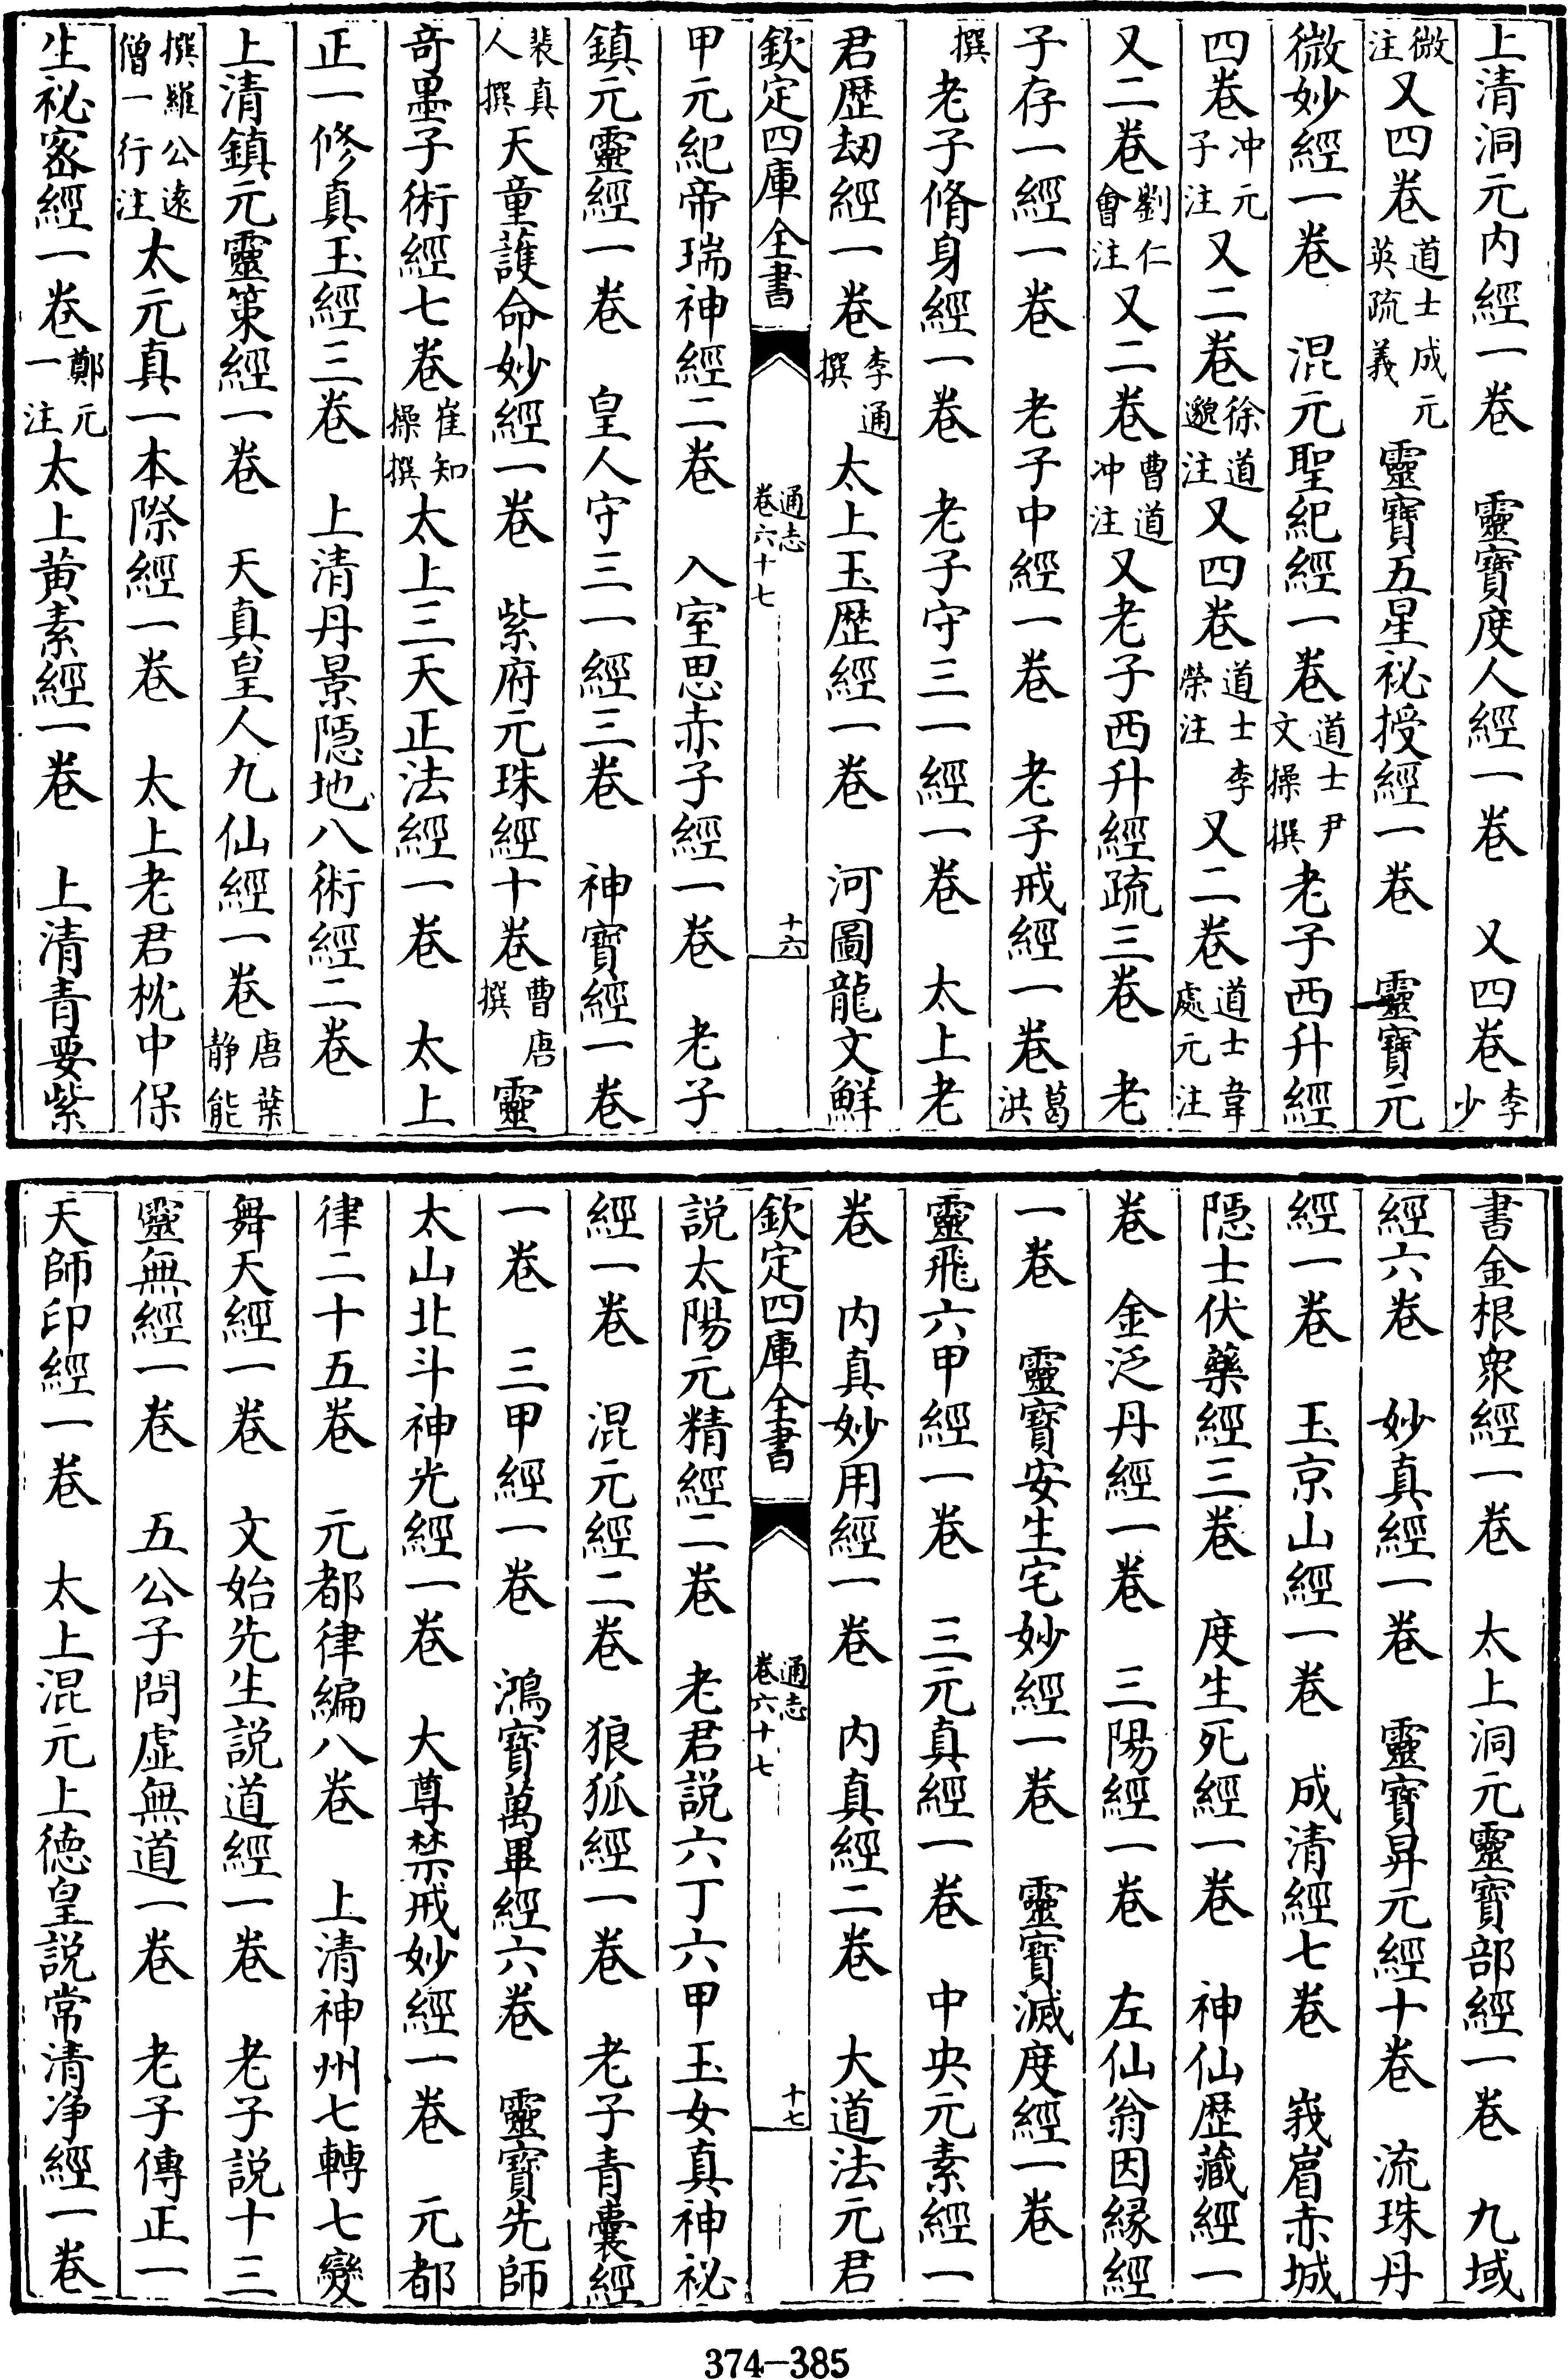 上清洞元内經一卷　靈寶度人經一卷　又四卷李少
微注又四卷道士成元英疏義　靈寶五星祕授經一卷　靈寶元
微妙經一卷　混元聖紀經一卷道士尹文操撰老子西升經
四卷冲元子注又二卷徐道邈注又四卷道士李榮注　又二卷道士韋處元注
又二卷劉仁會注又二卷曹道冲注又老子西升經疏三卷　老
子存一經一卷　老子中經一卷　老子戒經一卷葛洪
撰老子脩身經一卷　老子守三一經一卷　太上老
君歴劫經一卷李通撰　太上玉歴經一卷　河圖龍文鮮
欽定四庫全書　通志卷六十七　十六
甲元紀帝瑞神經二卷　入室思赤子經一卷　老子
鎮元靈經一卷　皇人守三一經三卷　神寶經一卷
裴真人撰天童護命妙經一卷　紫府元珠經十卷曹唐撰　靈
奇墨子術經七卷崔知操撰太上三天正法經一卷　太上
正一修真玉經三卷　上清丹景隠地八術經二卷
上清鎮元靈策經一卷　天真皇人九仙經一卷唐葉静能
撰羅公逺僧一行注太元真一本際經一卷　太上老君枕中保
生祕宻經一卷鄭元一注太上黄素經一卷　上清青要紫
書金根衆經一卷　太上洞元靈寶部經一卷　九域
經六卷　妙真經一卷　靈寶昇元經十卷　流珠丹
經一卷　玉京山經一卷　成清經七卷　峩眉赤城
隠士伏藥經三卷　度生死經一卷　神仙歴藏經一
卷　金泛丹經一卷　三陽經一卷　左仙翁因縁經
一卷　靈寶安生宅妙經一卷　靈寶滅度經一卷
靈飛六甲經一卷　三元真經一卷　中央元素經一
卷　内真妙用經一卷　内真經二卷　大道法元君
欽定四庫全書　通志卷六十七　十七
説太陽元精經二卷　老君説六丁六甲玉女真神祕
經一卷　混元經二卷　狼狐經一卷　老子青囊經
一卷　三甲經一卷　鴻寶萬畢經六卷　靈寶先師
太山北斗神光經一卷　大尊禁戒妙經一卷　元都
律二十五卷　元都律編八卷　上清神州七轉七變
舞天經一卷　文始先生説道經一卷　老子説十三
靈無經一卷　五公子問虚無道一卷　老子傳正一
天師印經一卷　太上混元上徳皇説常清净經一卷
374-385